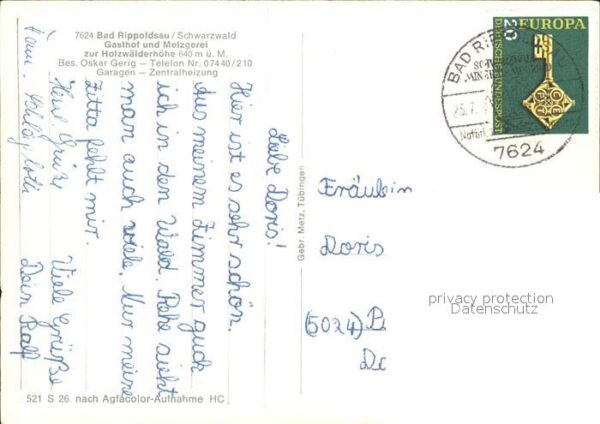 7624 Bad Rippoldsau / Schwarzwald
Gasthof und Metzgerei
zur Holzwälderhöhe 640 m ü. M.
Bes. Oskar Gerig — Telefon Nr. 07440/210
Garagen — Zentralheizung
Liebe Doris!
Hier ist es sehr schön.
Aus meinem Zimmer guck
ich in den Wald. Rehe sieht
man auch viele. Nur meine
Zitta fehlt mir.
Viele Grüße
Dein Ralf
Herzl. Grüße
Fam.
521 S 26 nach Agfacolor-Aufnahme HC
Gebr. Metz, Tübingen
EUROPA
20
DEUTSCHE BUNDESPOST
BAD RIPPOLDSAU
7624
Fräulein
Doris
(5024) P
privacy protection
Datenschutz